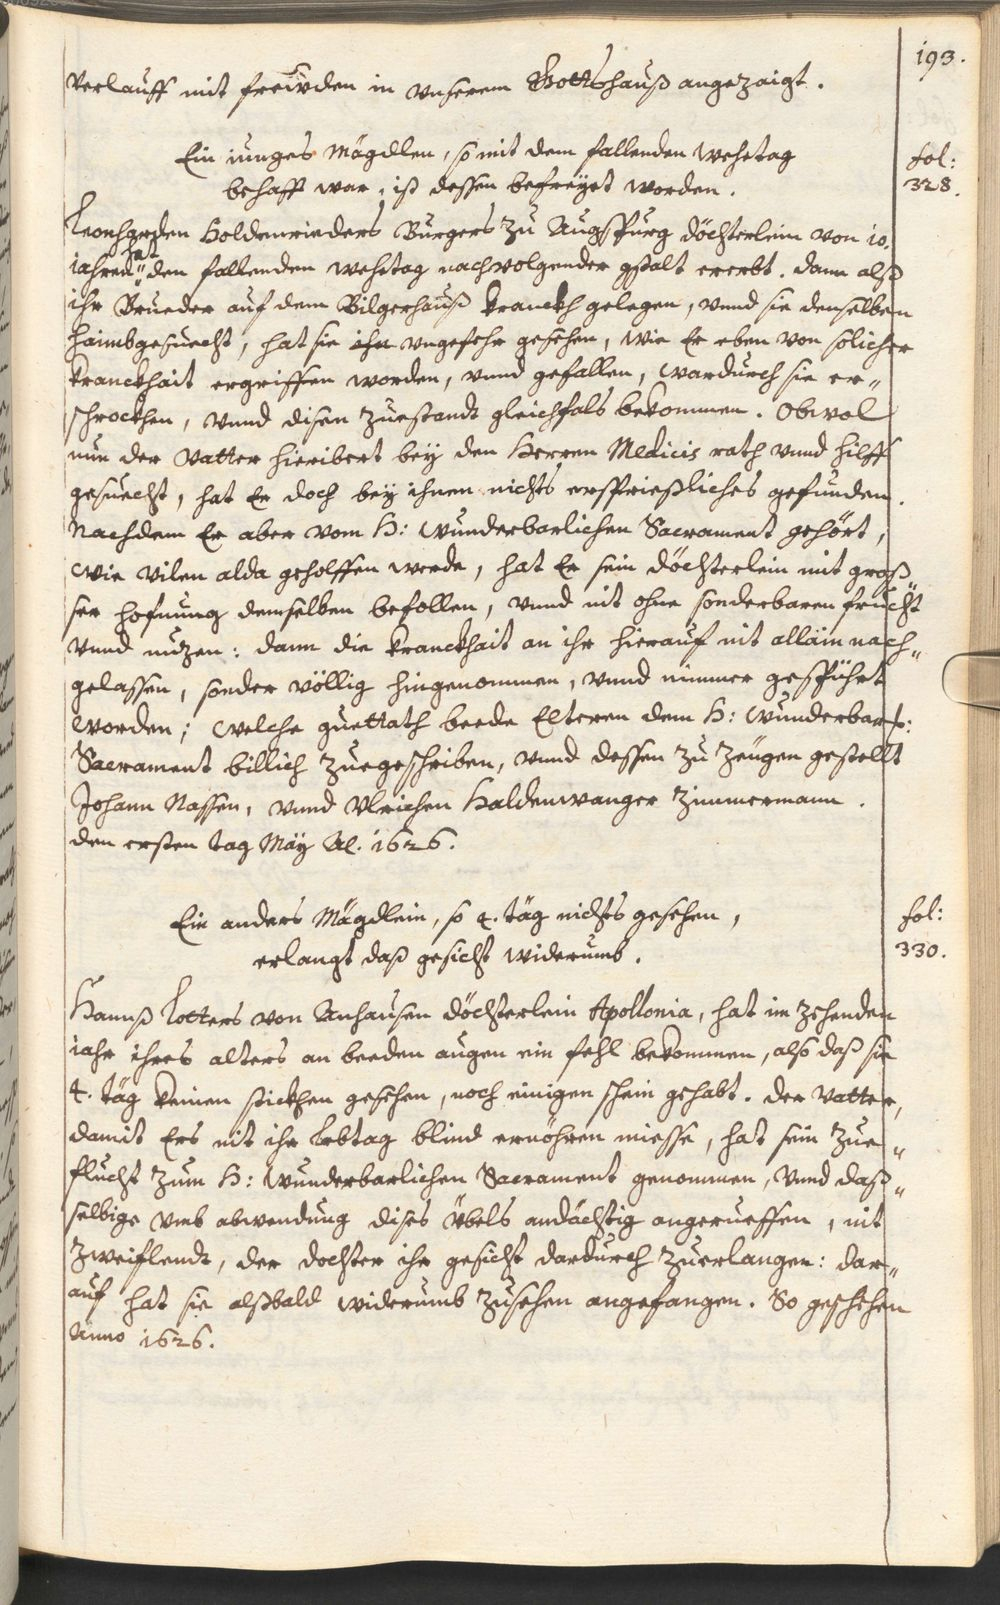 193.
verlauff mit freüden in vnserem Gottshauß angezaigt.
Ein iunges Mägdlen, so mit dem fallenden wehetag
behafft war, ist dessen befreyet worden.
fol:
328.
Leonharden Holdenrieders Burgers zu Augspurg döchterlein von 10.
iahren hat den fallenden wehetag nachvolgender gstalt ererbt. dann alß
ihr Brueder auf dem Bilgerhauß kranckh gelegen, vnnd sie denselben
haimbgesuecht, hat sie ihn vngefehr gesehen, wie Er eben von solicher
kranckhait ergriffen worden, vnnd gefallen, wardurch sie er„
schrockhen, vnnd disen zuestandt gleichfals bekommen. Obwol
nun der Vatter hieribert bey den Herren Medicis rath vnnd hilff
gesuecht, hat Er doch bey ihnen nichts ersprießliches gefunden.
Nachdem Er aber vom H: wunderbarlichen Sacrament gehört,
wie vilen alda geholffen werde, hat Er sein döchterlein mit groß„
ser hofnung demselben befollen, vnnd nit ohne sonderbaren frucht
vnnd nutzen: dann die kranckhait an ihr hierauf nit allain nach„
gelassen, sonder völlig hingenommen, vnnd nimmer gespührt
worden; welche guettath beede Elteren dem H: wunderbarl:
Sacrament billich zuegeschriben, vnnd dessen zu zeugen gestellt
Johann Nassen, vnnd Vlrichen Haldenwanger Zimmermann.
den ersten tag May A(o). 1626.
Ein anders Mägdlein, so 4. täg nichts gesehen,
erlangt daß gesicht widerumb.
fol:
330.
Hannß Lotters von Anhausen döchterlein Apollonia, hat im zehenden
iahr ihres alters an beeden augen ein fehl bekommen, also daß sie
4. täg keinen stickhen gesehen, noch einigen schein gehabt. der Vatter,
damit Ers nit ihr lebtag blind ernöhren miesse, hat sein zue„
flucht zum H: wunderbarlichen Sacrament genommen, vnnd daß„
selbige vmb abwendung dises übels andächtig angerueffen, nit
zweiflendt, der dochter ihr gesicht dardurch zuerlangen: dar„
auf hat sie alßbald widerumb zusehen angefangen. So geschehen
Anno 1626.